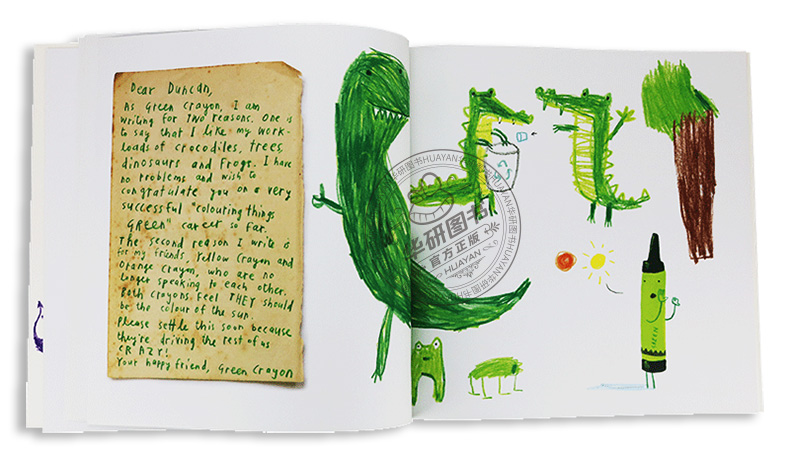 Dear Duncan,
As Green Crayon, I am
writing for two reasons. One is
to say that I like my work-
loads of crocodiles, trees,
dinosaurs and frogs. I have
no problems and wish to
congratulate you on a very
successful "colouring things
GREEN" career so far.
The second reason I write is
for my friends, Yellow Crayon and
Orange Crayon, who are no
longer speaking to each other.
Both crayons feel THEY should
be the colour of the sun.
Please settle this soon because
they're driving the rest of us
CRAZY!
Your happy friend, Green Crayon
GREEN
华研图书HUAYAN
华研图书
官方正版
HUAYAN